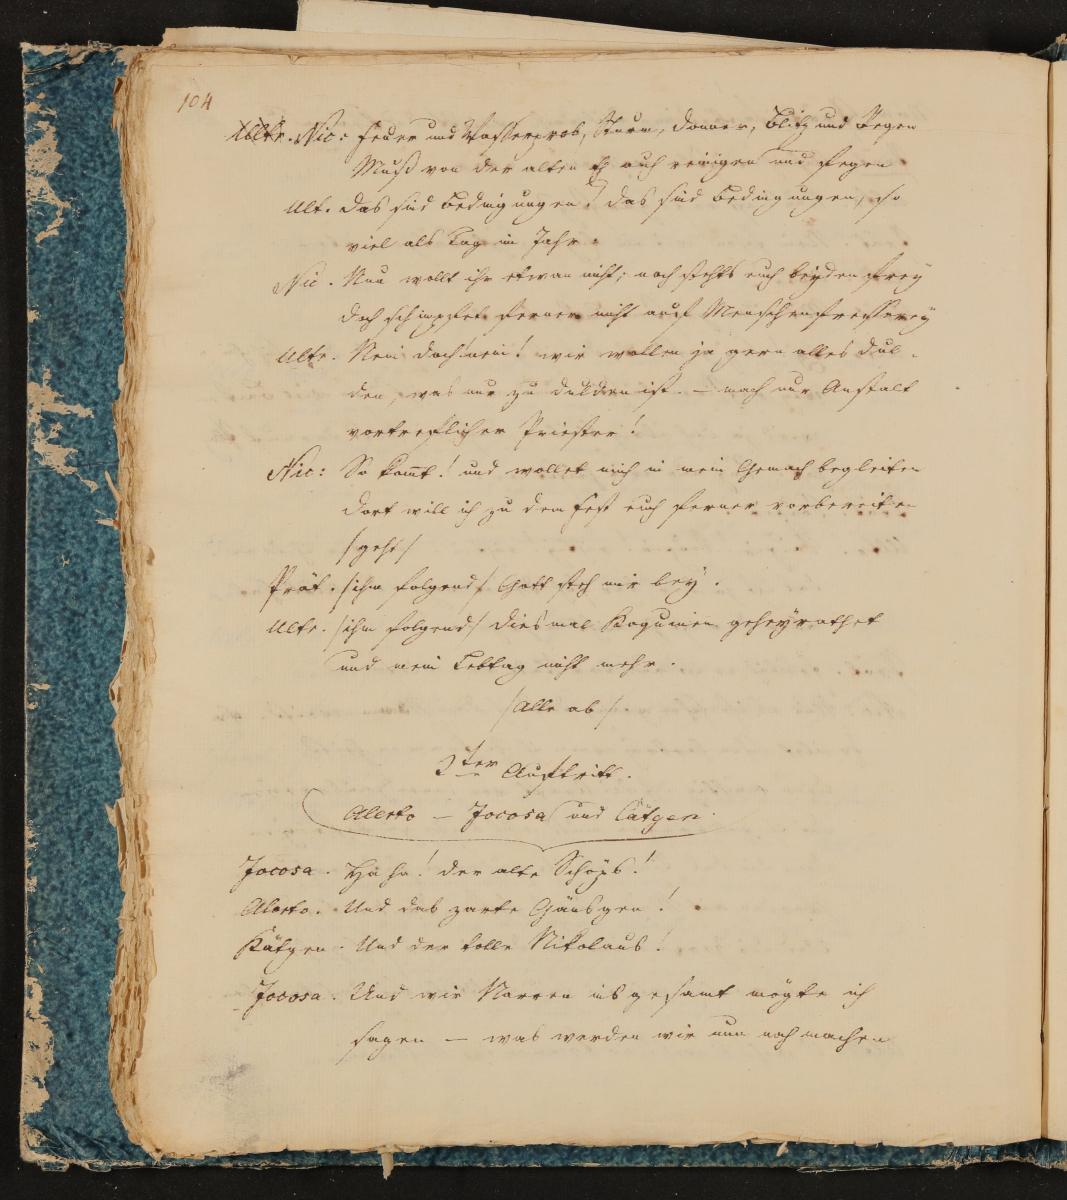 104
Altr. Nic: Feuer und Wasserprob, Sturm, Donner, Blitz und Regen
Muß von der alten  euch reinigen und fegen.
Alt. Das sind Bedingungen! das sind Bedingungen, so
viel als Tag im Jahr.
Nic. Nun wollt ihr etwan nicht; noch stehts euch beyden frey
doch schimpfet ferner nicht auf Menschenfresserey
Altr. Nein doch! nein! wir wollen ja gern alles dul-
den, was nur zu dulden ist. — mach nur Anstalt
vortreflicher Priester!
Nic: So komt! und wollet mich in mein Gemach begleiten
dort will ich zu dem Fest euch ferner vorbereiten
/geht/
Prät. /ihm folgend/ Gott steh mir bey.
Altr. /ihm folgend/ Diesmal  geheyrathet
und mein Lebtag nicht mehr.
/Alle ab/.
3ter Auftritt.
Alerto — Jocosa und Cätgen.
Jocosa. Ha ha! der alte Schöps!
Alerto. Und das zarte Gänsgen!
Kätgen. Und der tolle Nikolaus!
Jocosa. Und wir Narren insgesamt mögte ich
sagen — was werden wir nun noch machen